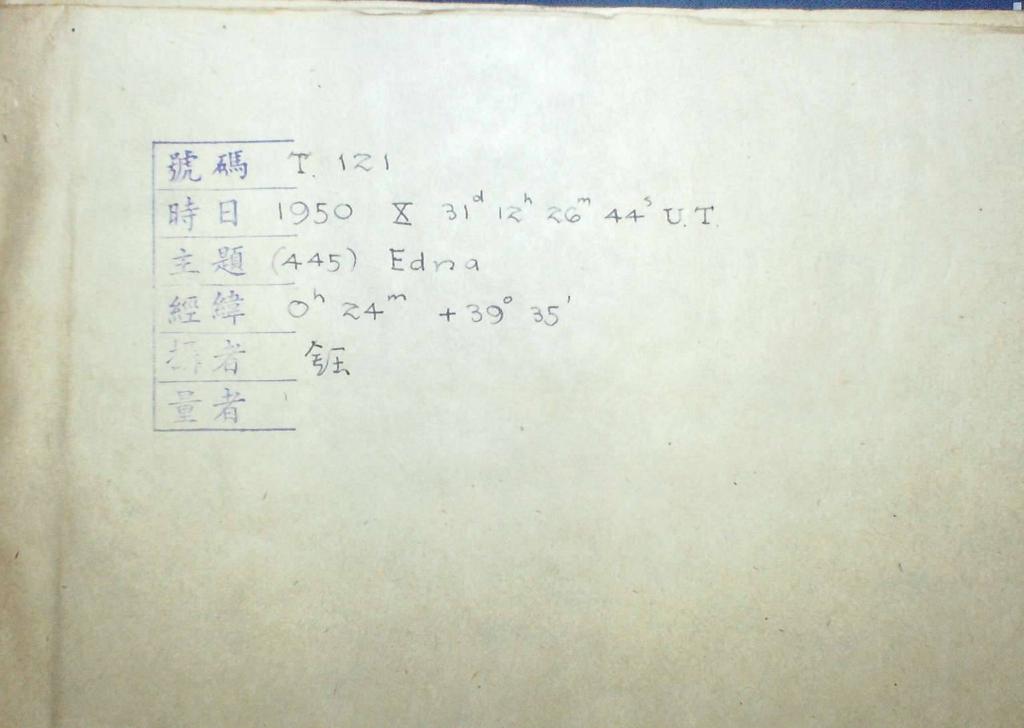 號碼 T. 121
時日 1950 X 31d 12h 26m 44s U.T.
主題 (445) Edna
經緯 0h 24m +39° 35'
者
量者